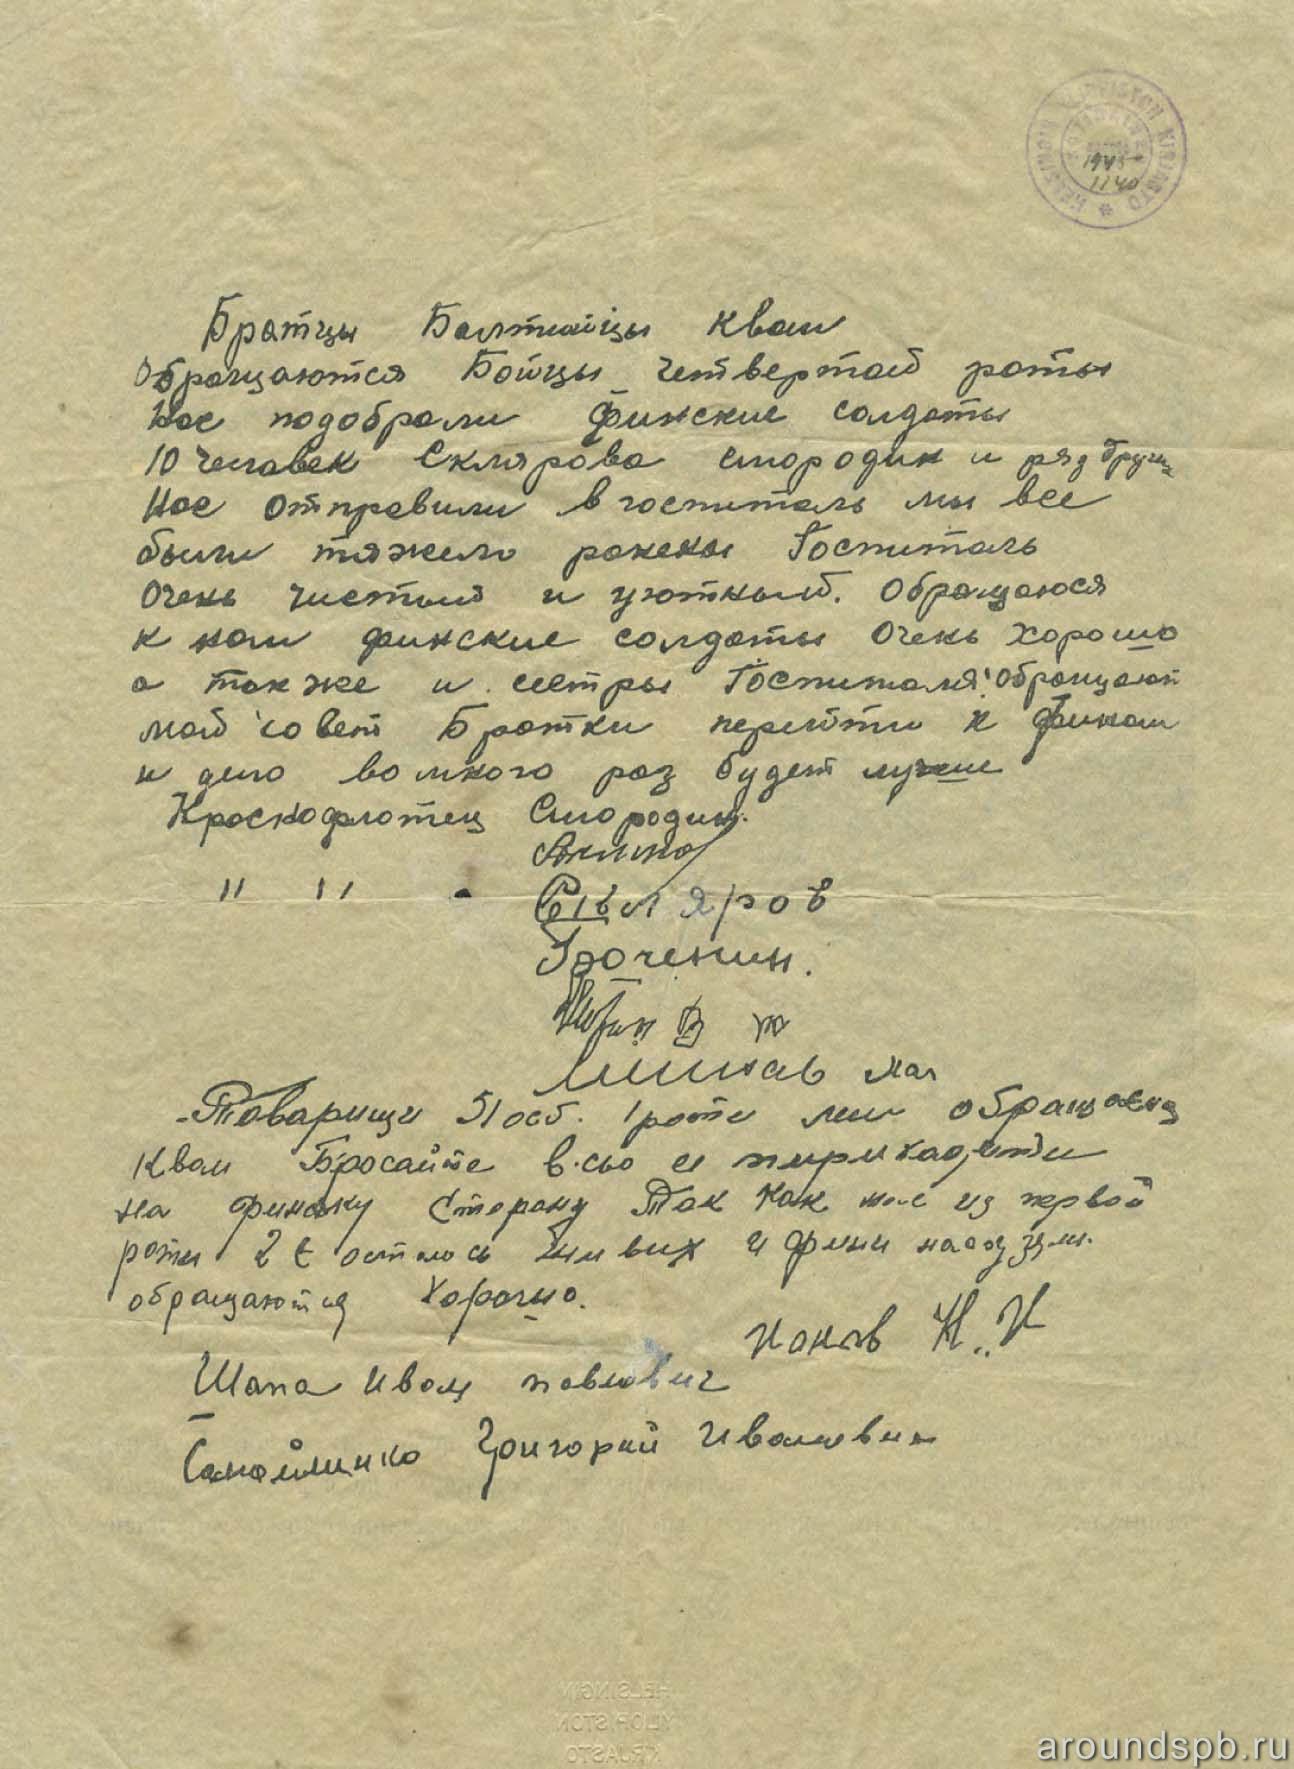 HELSINGIN YLIOPISTON KIRJASTO
1945
1140
Братцы Балтийцы квам
Обращаются Бойцы четвертой роты
Нас подобрали финские солдаты
10 человек Склярова Смородин и ряд других
Нас отправили в госпиталь мы все
были тяжело ранены Госпиталь
очень чистый и уютный. обращаюся
к нам финские солдаты очень хорошо
а также и сестры Госпиталя! обращают
мой совет Братки перейти к финам
и дело во много раз будет лучше
Краснофлотец Смородин.
" "
Скляров
В
Минаев
Товарищи 51 осб. 1 роти ми обращаемя
Квам Бросайте всьо и пириходити
на финьку Сторону Так как нас из первой
роти 2 осталось живих и фини насоузми.
обращаются хорошо.
Шапа Иван павлович
Григорий Иванович
HELSINGIN
YLIOPISTON
KIRJASTO
aroundspb.ru